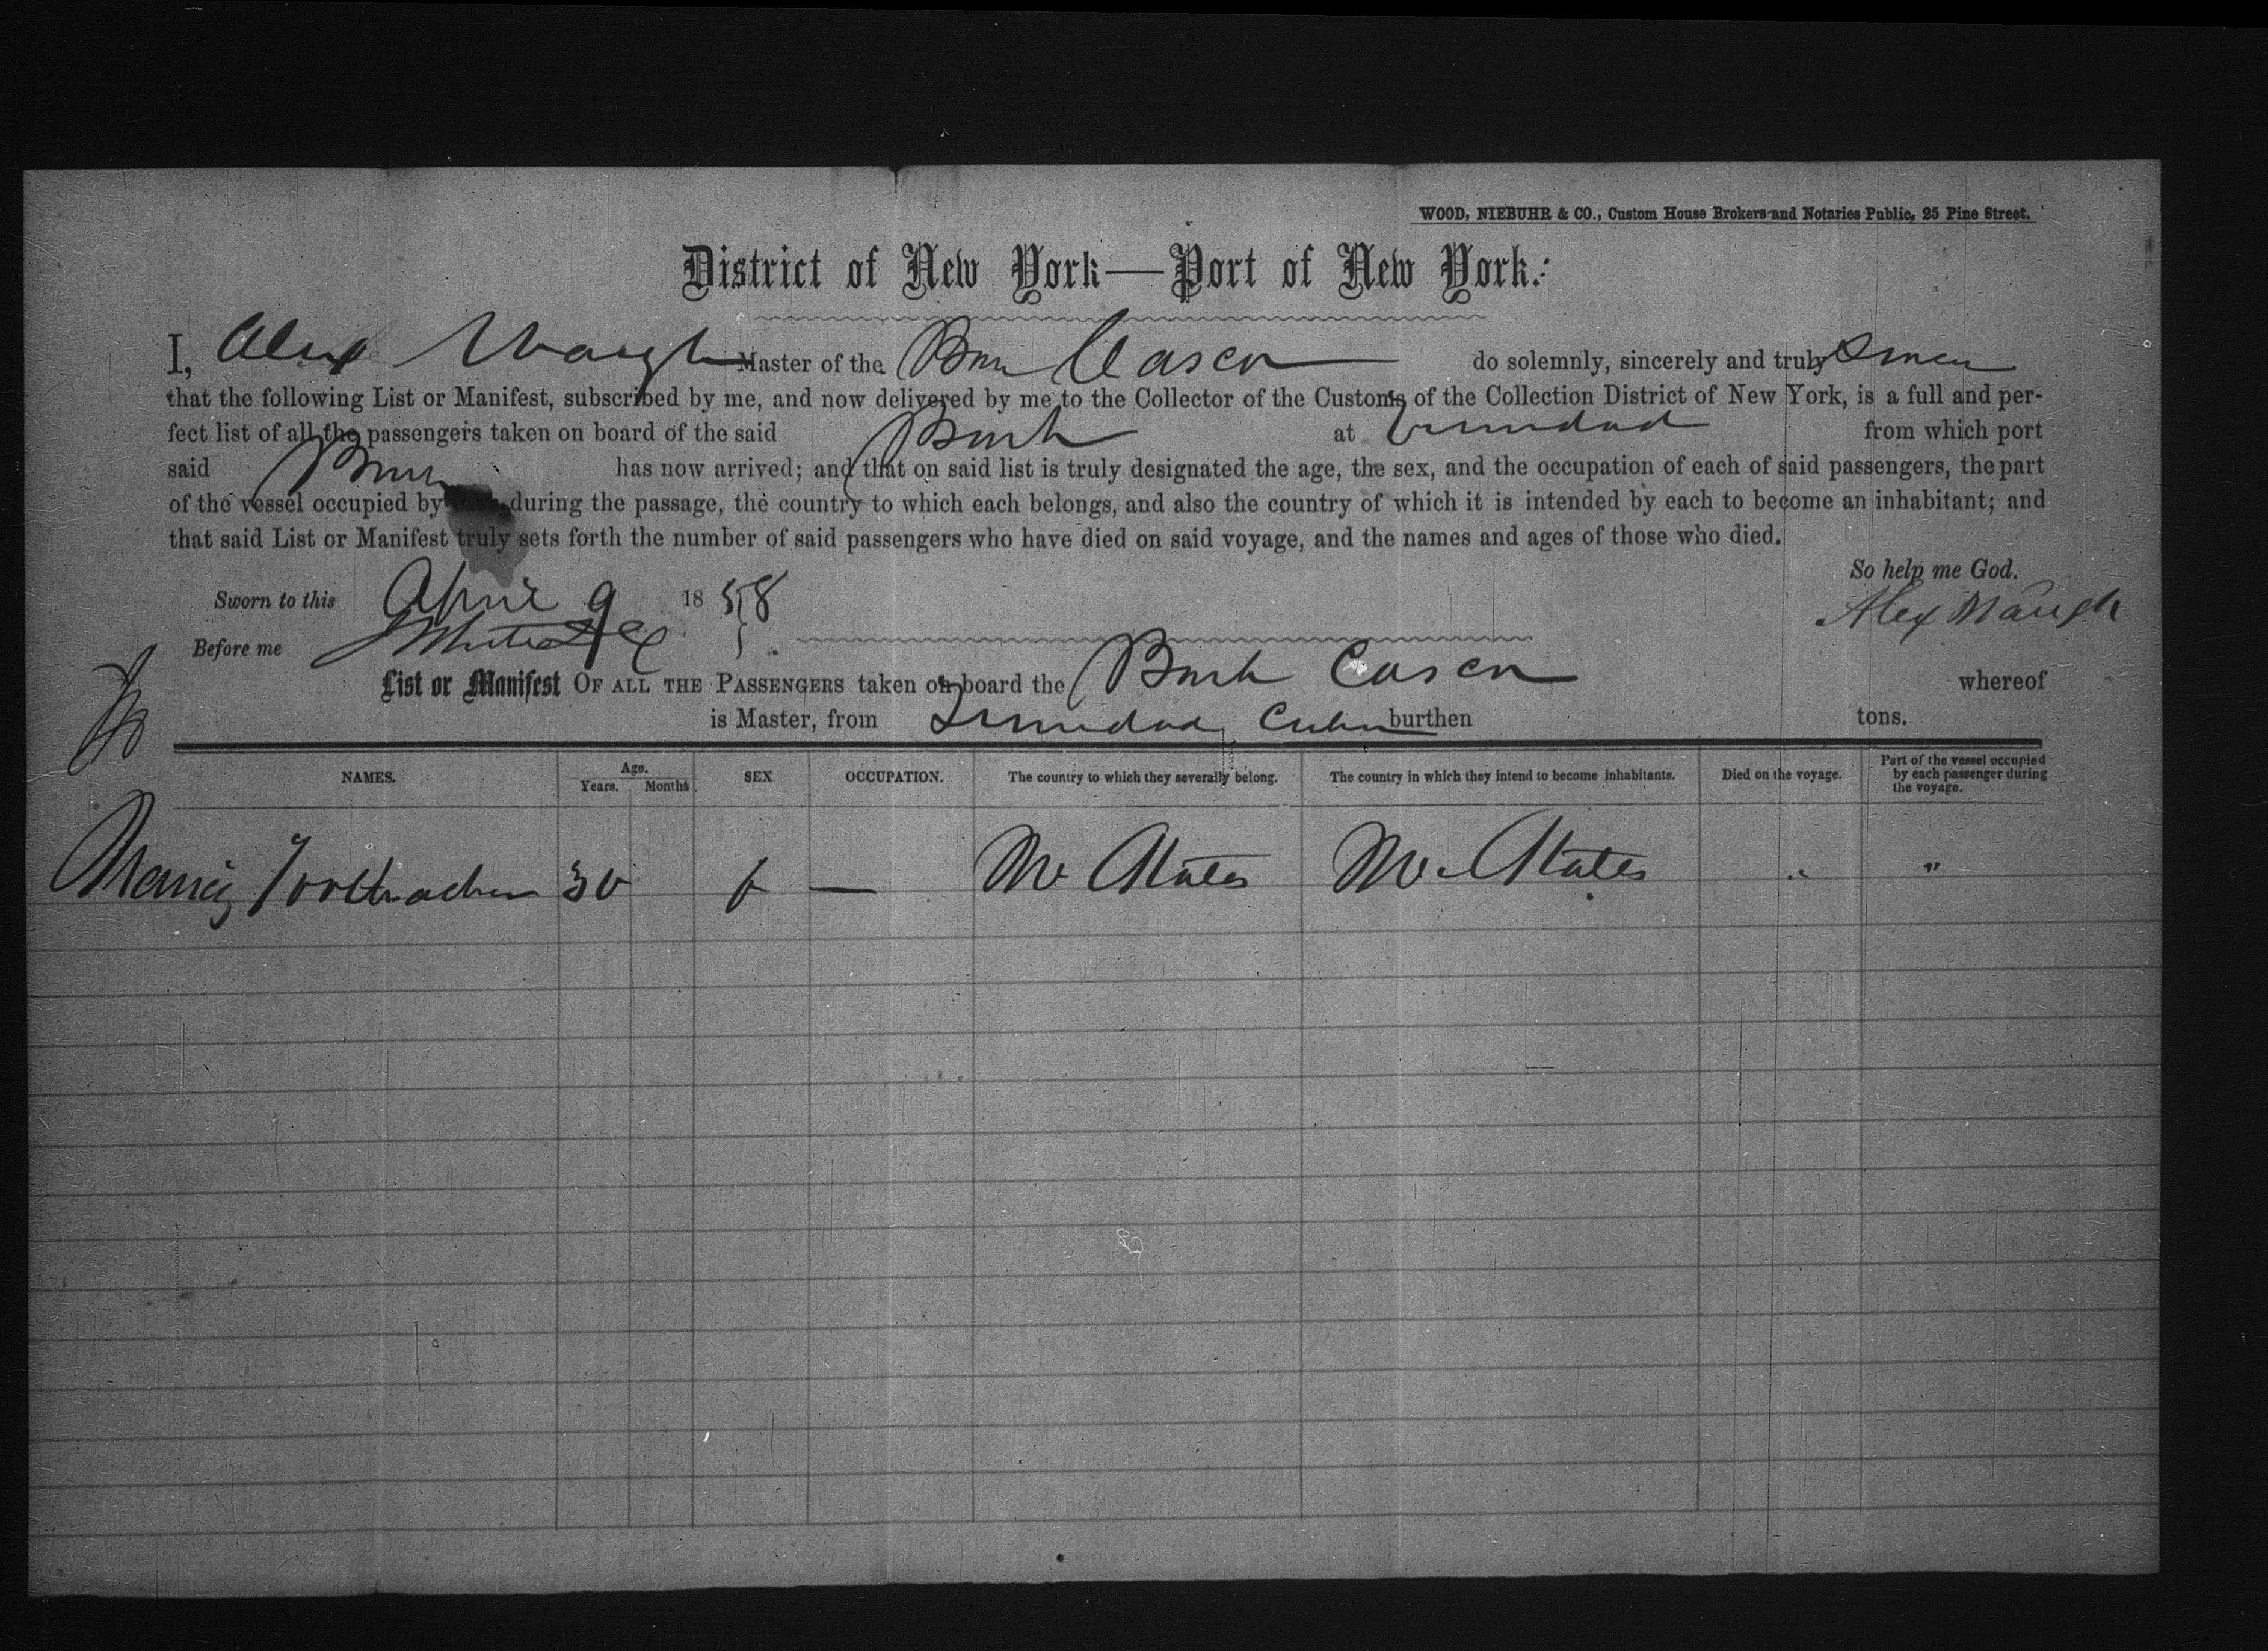 WOOD, NIEBUHR & CO., Custom House Brokers and Notaries Public, 25 Pine Street.
District of New York—Port of New York:
I, Alex Waugh Master of the Bark Casco do solemnly, sincerely and truly swear
that the following List or Manifest, subscribed by me, and now delivered by me to the Collector of the Customs of the Collection District of New York, is a full and per-
fect list of all the passengers taken on board of the said Bark at Trinidad from which port
said Bark has now arrived; and that on said list is truly designated the age, the sex, and the occupation of each of said passengers, the part
of the vessel occupied by during the passage, the country to which each belongs, and also the country of which it is intended by each to become an inhabitant; and
that said List or Manifest truly sets forth the number of said passengers who have died on said voyage, and the names and ages of those who died.
So help me God.
Sworn to this April 9 1858
Alex Waugh
Before me
List or Manifest OF ALL THE PASSENGERS taken on board the Bark Casco whereof
is Master, from Trinidad, Cuba burthen tons.
NAMES. Age. Years. Months SEX OCCUPATION. The country to which they severally belong. The country in which they intend to become inhabitants. Died on the voyage. Part of the vessel occupied by each passenger during the voyage.
30 f — States States " "